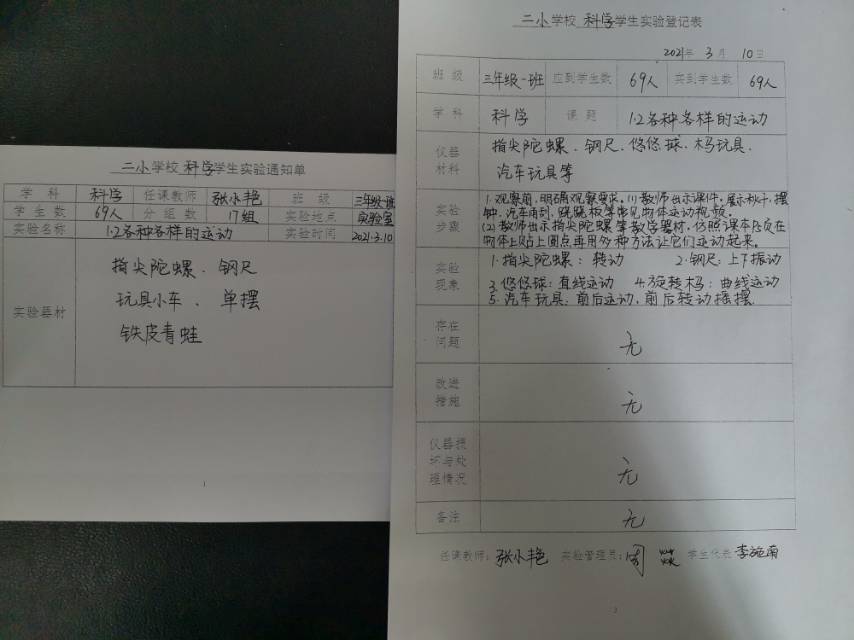 二小学校 科学学生实验通知单
学 科 科学 任课教师 张小艳 班 级 三年级一班
学生数 69人 分组数 17组 实验地点 实验室
实验名称 1.2各种各样的运动 实验时间 2021.3.10
实验器材
指尖陀螺、钢尺
玩具小车、单摆
铁皮青蛙
1
二小学校 科学学生实验登记表
2021年 3月 10日
班 级 三年级一班 应到学生数 69人 实到学生数 69人
学 科 科学 课 题 1.2各种各样的运动
仪器材料
指尖陀螺、钢尺、悠悠球、木马玩具、
汽车玩具等
实验步骤
1.观察前,明确观察要求。(1)教师出示课件,展示秋千,摆
钟,汽车雨刮,跷跷板等常见物体运动视频。
(2)教师出示指尖陀螺等教学器材,仿照课本在
物体上贴上圆点再用多种方法让它们运动起来。
实验现象
1.指尖陀螺:转动 2.钢尺:上下振动
3.悠悠球:直线运动 4.旋转木马:曲线运动
5.汽车玩具:前后运动,前后转动摇摆
存在问题 无
改进措施 无
仪器损坏与处理情况 无
备注 无
任课教师:张小艳 实验管理员:周 学生代表 李